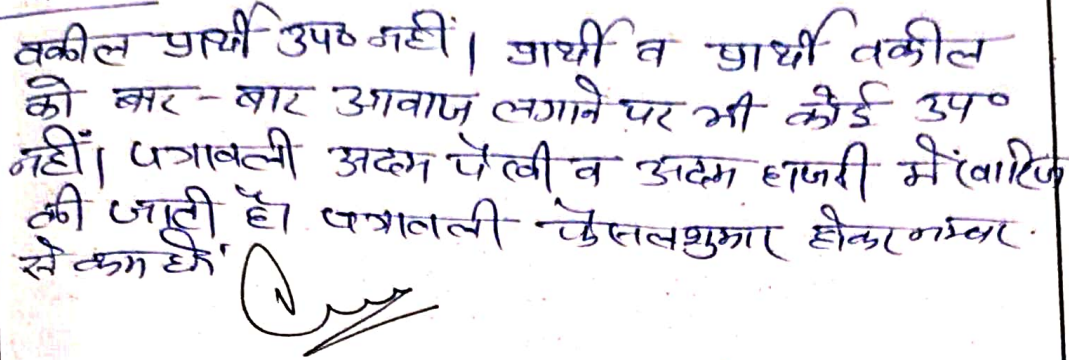 वकील प्रार्थी उप० नहीं। प्रार्थी व प्रार्थी वकील
को बार-बार आवाज लगाने पर भी कोई उप०
नहीं। पत्रावली अदम पैरवी व अदम हाजरी में खारिज
की जाती है। पत्रावली फैसलशुमार होकर नम्बर
से कम हो।